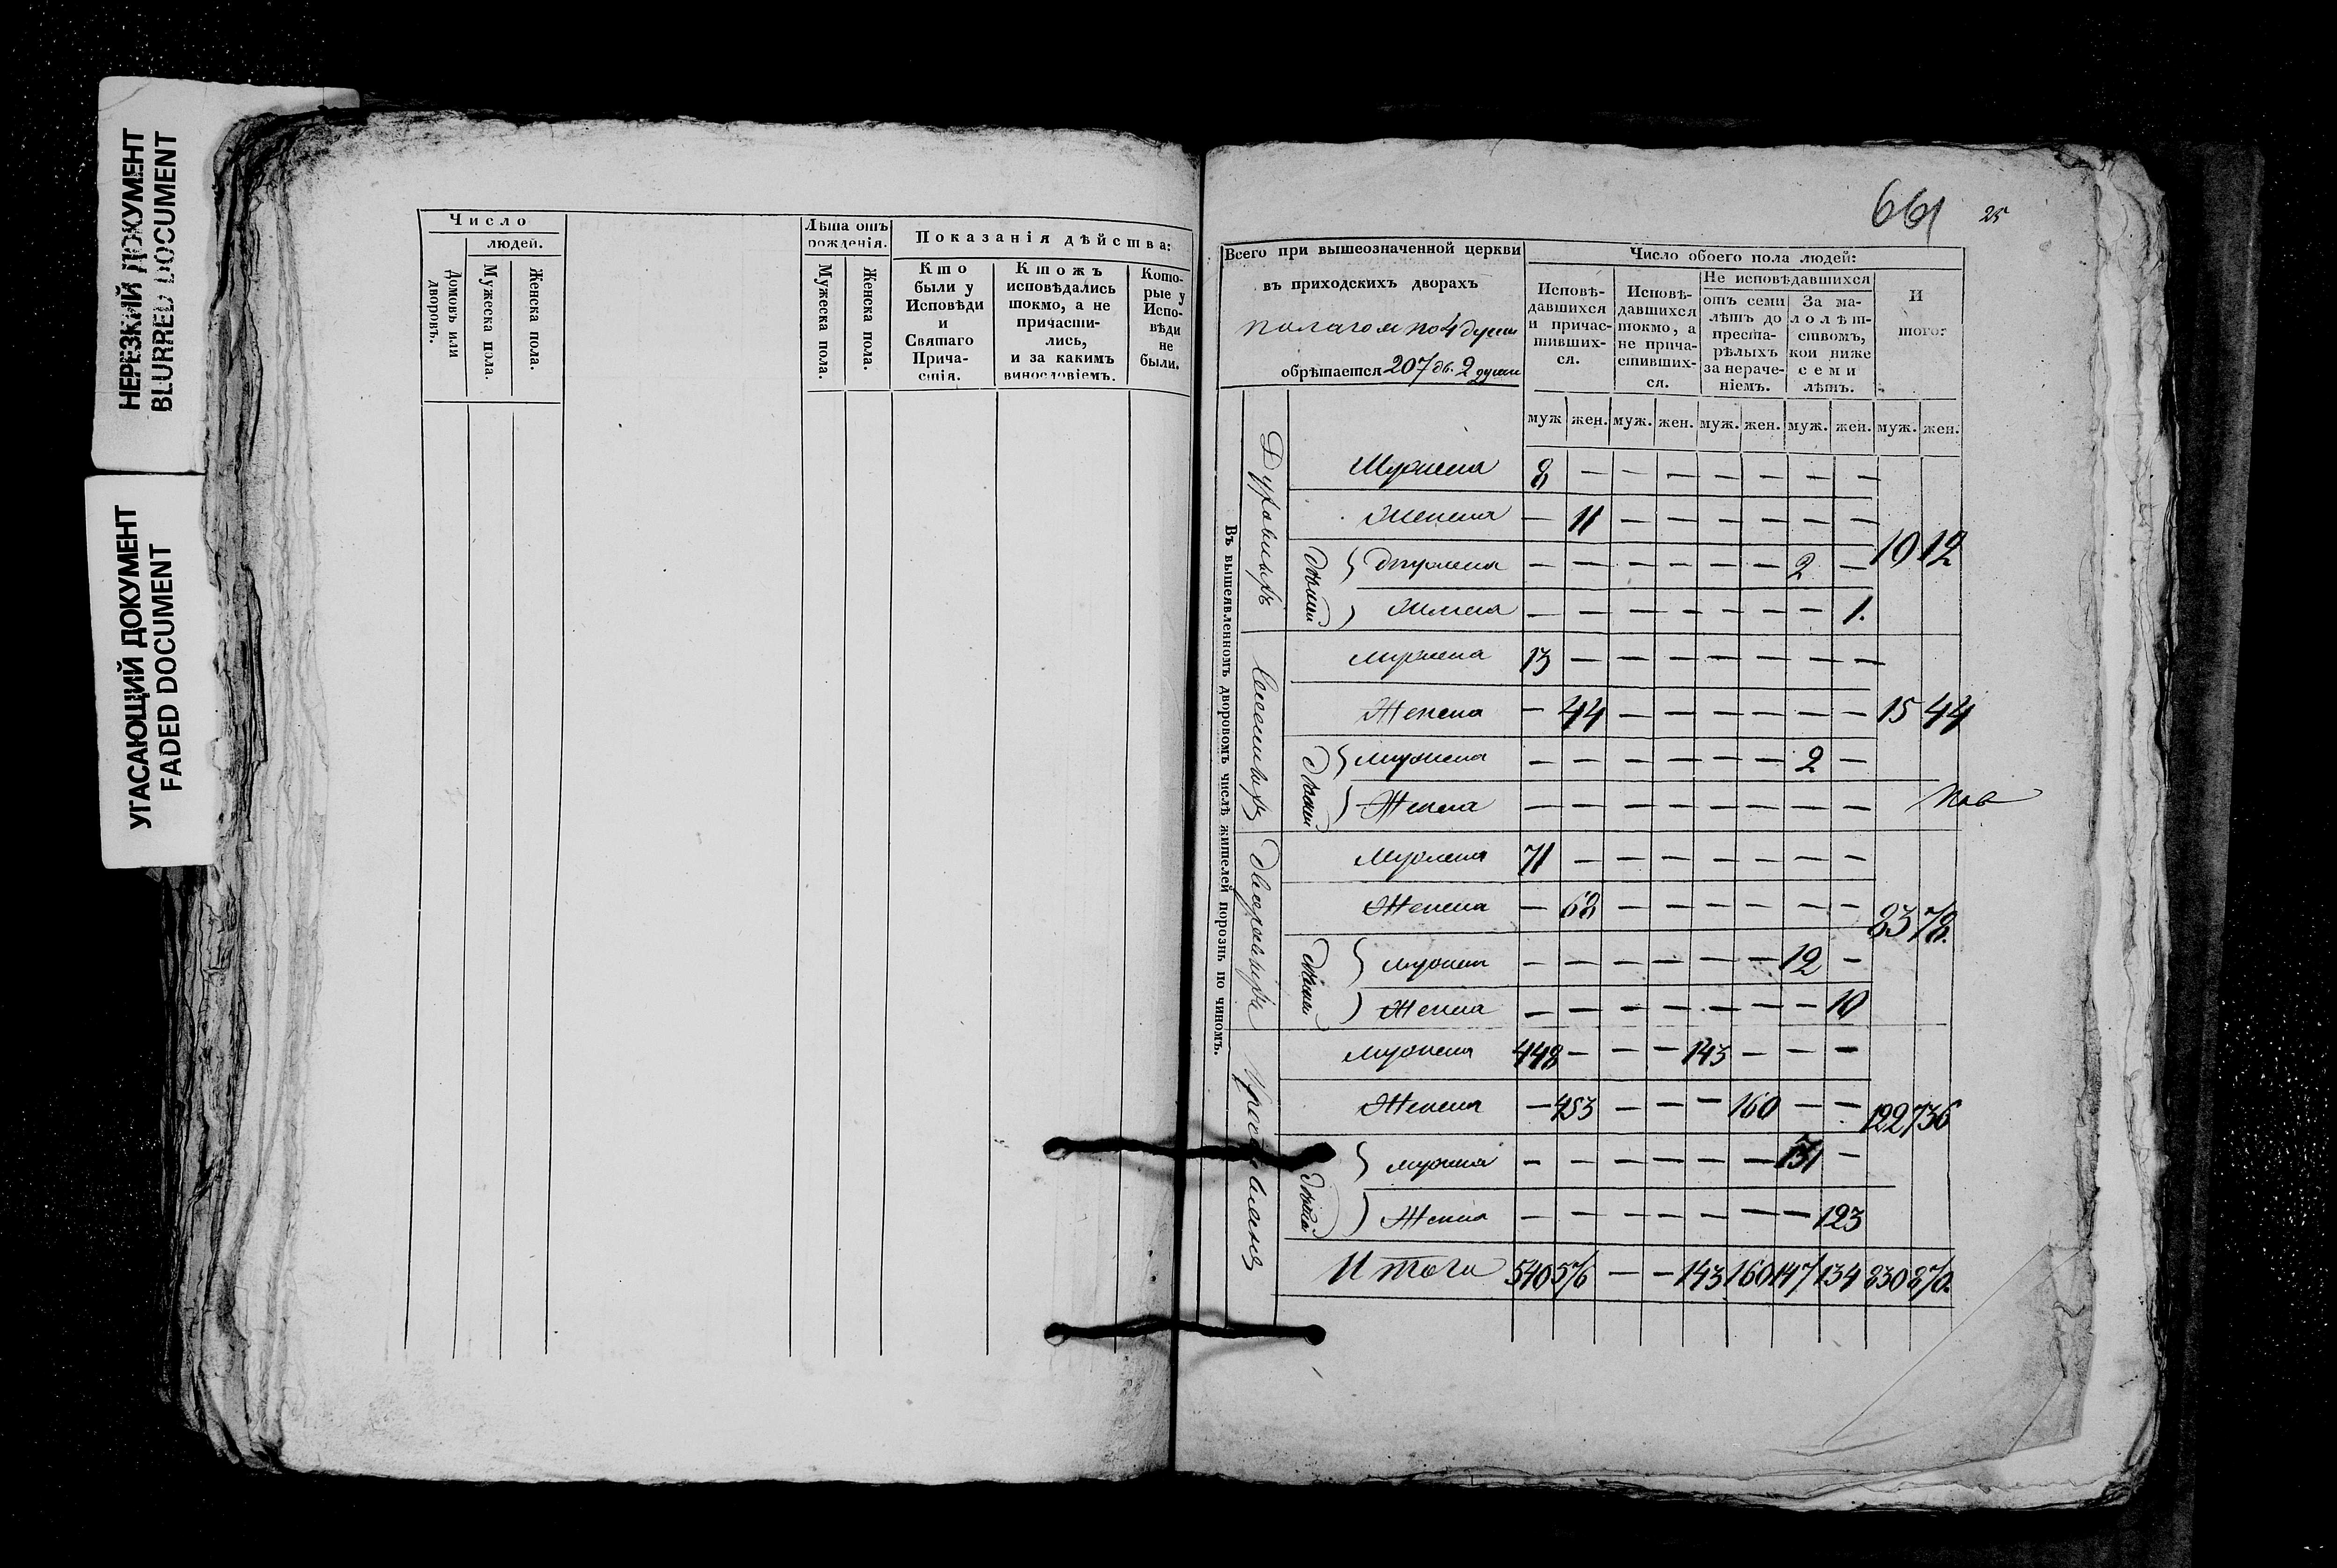 НЕРЕЗКИЙ ДОКУМЕНТ
BLURRED DOCUMENT
УГАСАЮЩИЙ ДОКУМЕНТ
FADED DOCUMENT
Число
людей.
Домовъ или дворовъ.
Мужеска пола.
Женска пола.
Лѣта отъ рожденія.
Мужеска пола.
Женска пола.
Показанія дѣйства:
Кто
были у
Исповѣди
и
Святаго
Прича-
стія.
Ктожъ
исповѣдались
токмо, а не
причасти-
лись,
и за какимъ
винословіемъ.
Кото-
рые у
Испо-
вѣди
не
были.
661 25
Всего при вышеозначенной церкви
въ приходскихъ дворахъ
полагая по 4 души
обрѣтается 207 дв. 2 души
Число обоего пола людей:
Исповѣ-
давшихся
и причас-
тивших-
ся.
Исповѣ-
давшихся
токмо, а
не прича-
стивших-
ся.
Не исповѣдавшихся
отъ семи
лѣтъ до
преста-
рѣлыхъ
за нераче-
ніемъ.
За ма-
лолѣт-
ствомъ,
кои ниже
семи
лѣтъ.
И
того:
муж. жен. муж. жен. муж. жен. муж. жен. муж. жен.
Въ вышеявленномъ дворовомъ числѣ жителей порознь по чиномъ.
Духовныхъ
Мужеска 8 — — — — — — —
Женска — 11 — — — — — —
дѣтей
Мужеска — — — — — — 2 —
10 12
Женска — — — — — — — 1.
Мужеска 13 — — — — — — —
Женска — 44 — — — — — — 15 44
дѣтей
мужеска — — — — — — 2 —
Женска — — — — — — — —
Дворовыхъ
Мужеска 71 — — — — — — —
Женска — 68 — — — — — —
83 78.
дѣтей
мужеска — — — — — — 12 —
Женска — — — — — — — 10
Крестьянъ
мужеска 448 — — — 143 — — —
Женска — 453 — — — 160 — —
722 736
дѣтей
мужеска — — — — — — 131 —
Женска — — — — — — — 123
Итого 540 576 — — 143 160 147 134 830 870.